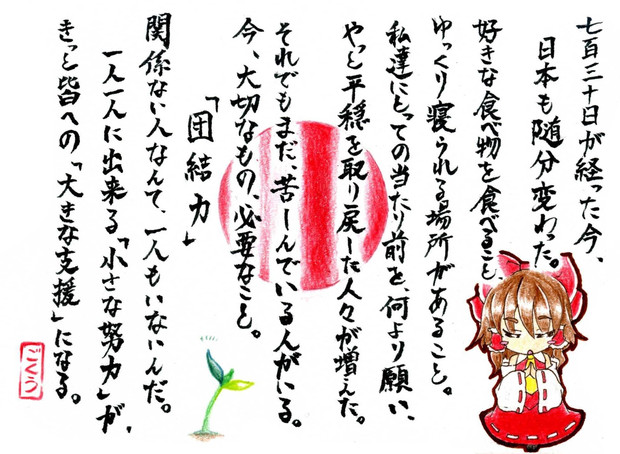 七百三十日が経った今、
日本も随分変わった。
好きな食べ物を食べること、
ゆっくり寝られる場所があること。
私達にとっての当たり前を、何より願い、
やっと平穏を取り戻した人々が増えた。
それでもまだ、苦しんでいる人がいる。
今、大切なもの、必要なこと。
「団結力」
関係ない人なんて、一人もいないんだ。
一人一人に出来る「小さな努力」が、
きっと皆への「大きな支援」になる。
ごくう